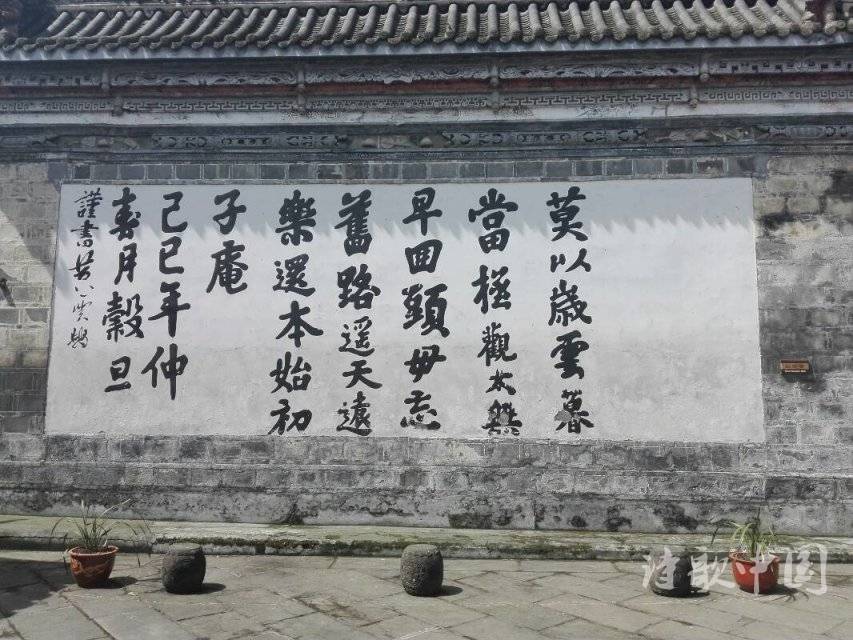 莫以歲雲暮
當極觀太無
早回毋忘
舊路遥天遠
樂還本始初
子庵
己巳年仲
春月穀旦
謹書
中国